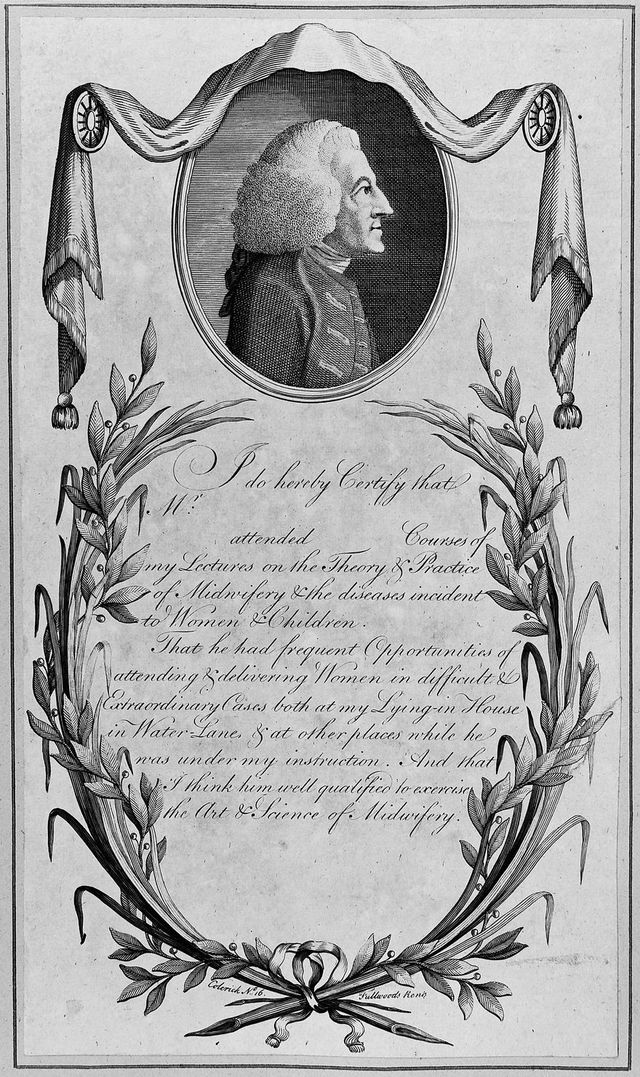 I do hereby Certify that
Mr.
attended Courses of
my Lectures on the Theory & Practice
of Midwifery & the diseases incident
to Women & Children.
That he had frequent Opportunities of
attending & delivering Women in difficult &
Extraordinary Cases both at my Lying-in House
in Water-Lane, & at other places while he
was under my instruction. And that
I think him well qualified to exercise
the Art & Science of Midwifery.
No. 16. Fullwoods Rents